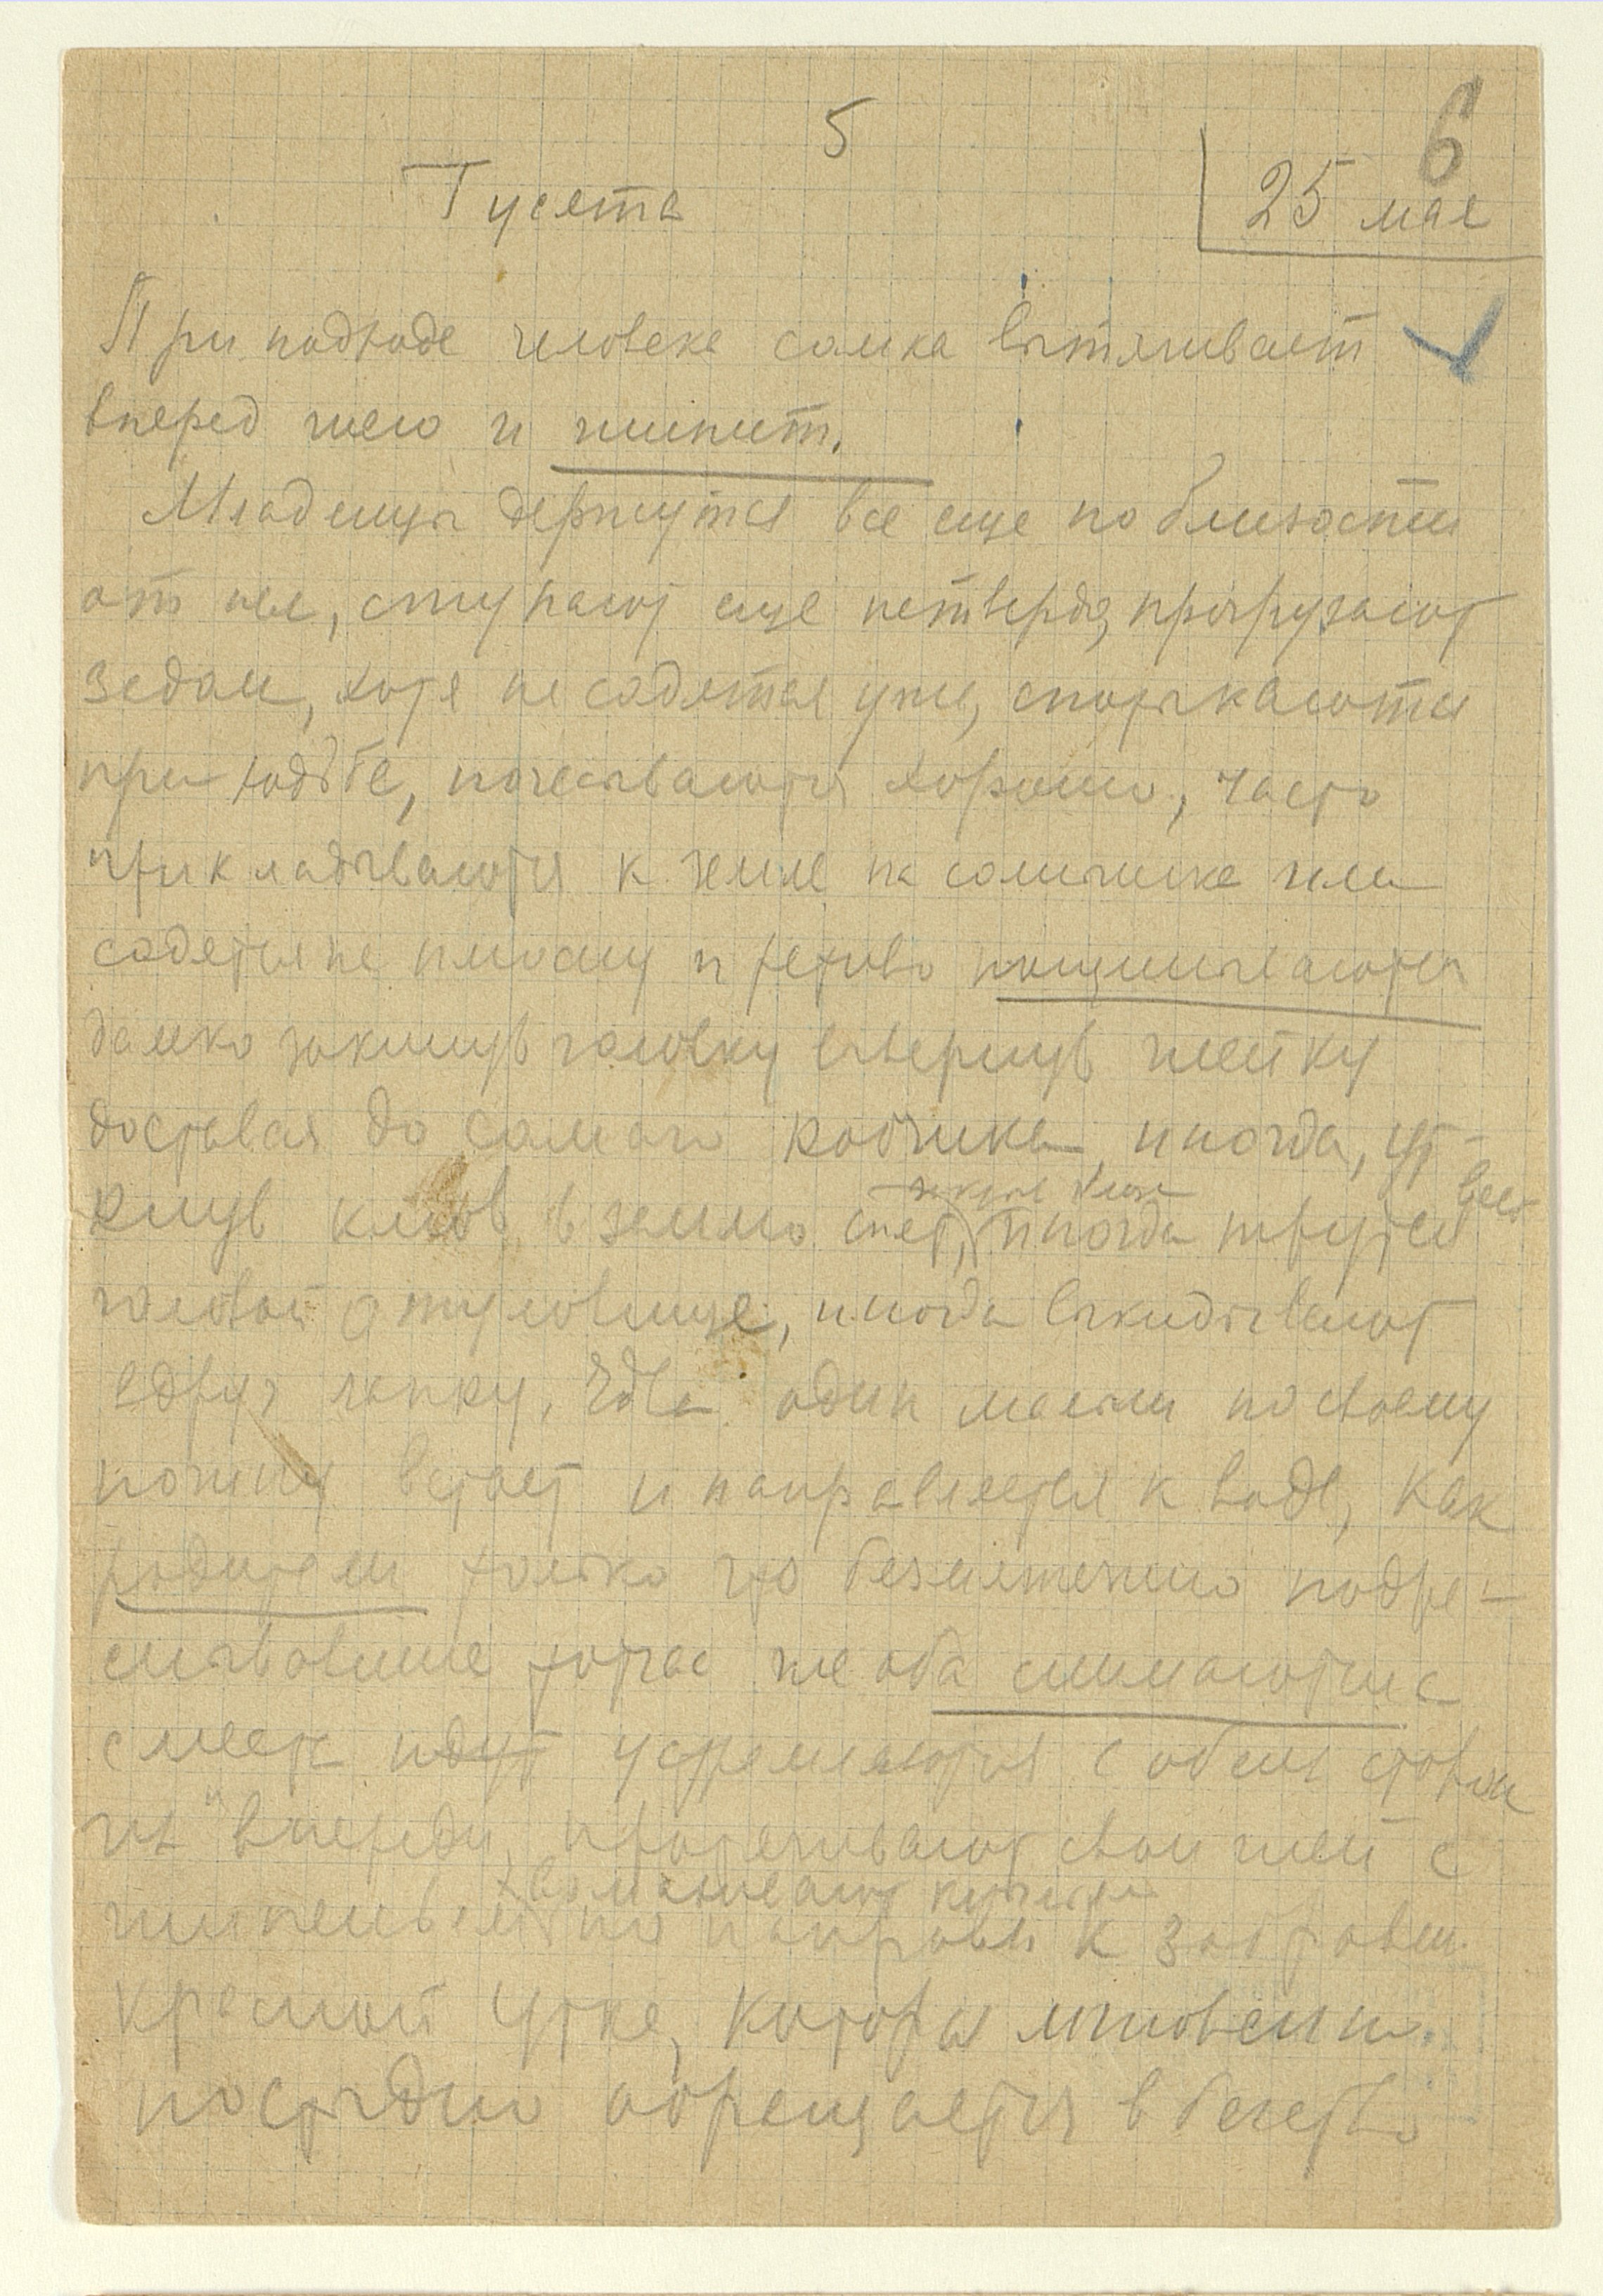 5
6
Гусята
25 мая
При подходе человека самка вытягивает
вперед шею и шипит.
Младенцы держутся все еще поблизости
от нея, ступают еще нетвердо, прогружают
задом, хотя не садятся уже, спотыкаются
при ходьбе, почесываются хорошо, часто
прикладываются к земле на солнышке или
садятся на плюсну и ретиво пощипываются
далеко закинув головку вывернув шейку
доставая до самого хвостика, иногда, ут-
кнув клюв в землю спят, иногда трутся
закрыв глаза
головой о туловище, иногда выкидывают
вдруг лапку. Едва один малыш по своему
почину встает и направляется к воде, как
родители только что безмятежно подре-
мывавшие тотчас же оба снимаются с
с места идут устремляются с обеих сторон
их впереди, протягивают свои шеи с
шипеньем
красной утке, которая мгновенно
постыдно обращается в бегство